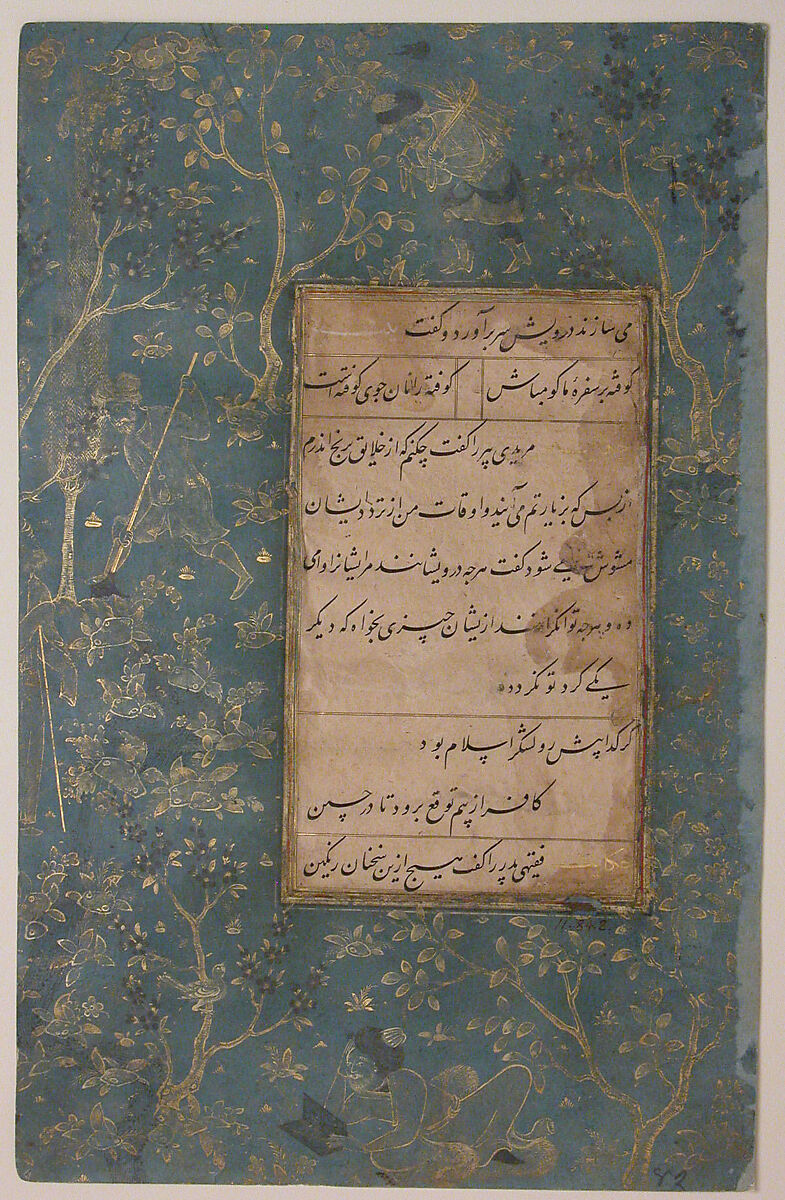 می سازند درویش سر برآورد و گفت
کوفته بر سفرهٔ ما کو مباش کوفته را نان جوی کوفته است
مریدی پیر را گفت چکنم که از خلایق برنج اندرم
از بس که بزیارتم می آیند و اوقات من از تردد ایشان
مشوش می شود گفت هرچه درویشانند مر ایشانرا وامی
ده و هرچه توانگرانند از یشان چیزی بخواه که دیگر
یکی گرد تو نگردد
گر گدا پیش رو لشکر اسلام بود
کافر از بیم توقع برود تا در چین
حکایت فقیهی پدر را گفت هیچ ازین سخنان رنگین
11.84.2.
82